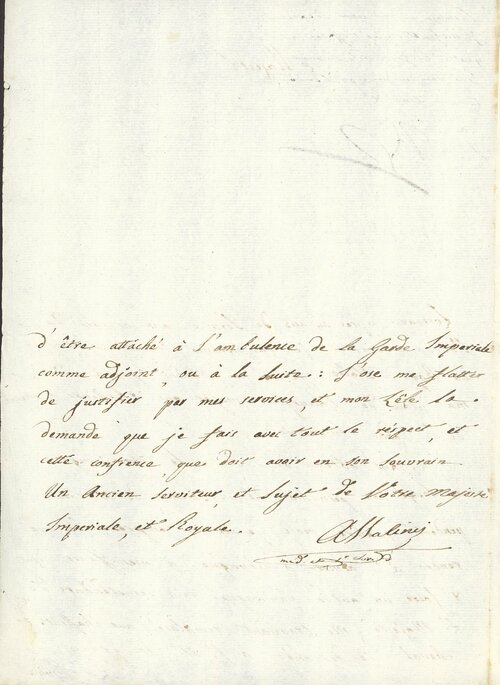 d'être attaché à l'ambulence de la Garde Imperiale
comme adjoint, ou à la Suite: J'ose me flatter
de justifier par mes services, et mon zèle la
demande que je fais avec tout le respect, et
cette confience que doit avoir en son souvrain
Un Ancien Serviteur et Sujet de Votre Majesté
Imperiale, et Royale.
Assalinij